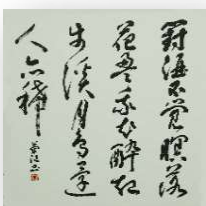 對酒不覺暝落
花盈我衣醉起
步溪月鳥還
人亦稀